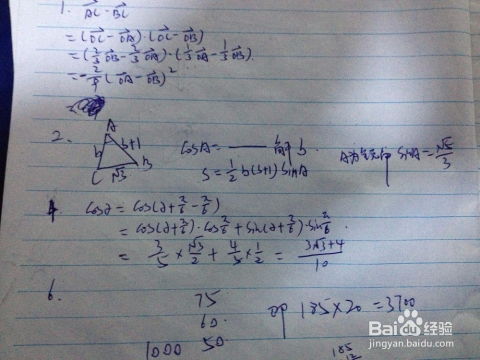 1. AC·BC
= (OC-OA)·(OC-OB)
= (2/3OB-2/3OA)·(1/3OA-1/3OB)
= -2/9(OA-OB)²
2. A
b b+1
C √3 B
cosA=
S=1/2b(b+1)sinA
sinA=√5/3
cosα = cos(α+π/6-π/6)
= cos(α+π/6)·cosπ/6+sin(α+π/6)·sinπ/6
= 3/5×√3/2+4/5×1/2=3√3+4/10
6.
75
60
1000 50
即 185×20=3700
185
Baidu 百度经验
jingyan.baidu.com